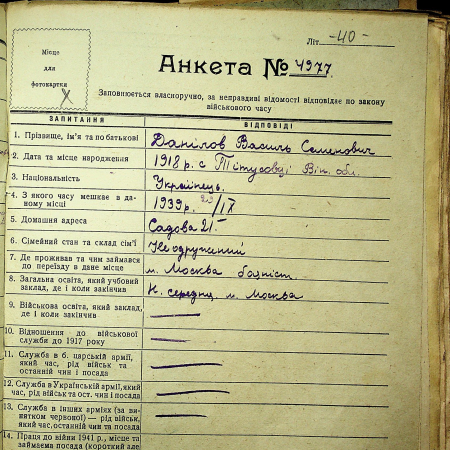 Літ -40-
Місце
для
фотокартки
Анкета № 4977
Заповнюється власноручно, за неправдиві відомості відповідає по закону
військового часу
ЗАПИТАННЯ
ВІДПОВІДІ
1. Прізвище, ім'я та по батькові
Данілов Василь Семенович
2. Дата та місце народження
1918 р. с Тітусовці Він. обл.
3. Національність
Українець.
4. З якого часу мешкає в да-
ному місці
1939 р. 29/IX
5. Домашня адреса
Садова 21
6. Сімейний стан та склад сім'ї
Неодружений
7. Де проживав та чим займався
до переїзду в дане місце
м. Москва
8. Загальна освіта, який учбовий
заклад, де і коли закінчив
Н. середнц. м. Москва
9. Військова освіта, який заклад,
де і коли закінчив
10. Відношення до військової
служби до 1917 року
11. Служба в б. царській армії,
який час, рід військ та
останній чин і посада
12. Служба в Українській армії, який
час, рід військ та ост. чин і посада
13. Служба в інших арміях (за ви-
нятком червоної) — рід військ,
який час, останній чин та посада
14. Праця до війни 1941 р., місце та
займаєма посада (короткий але